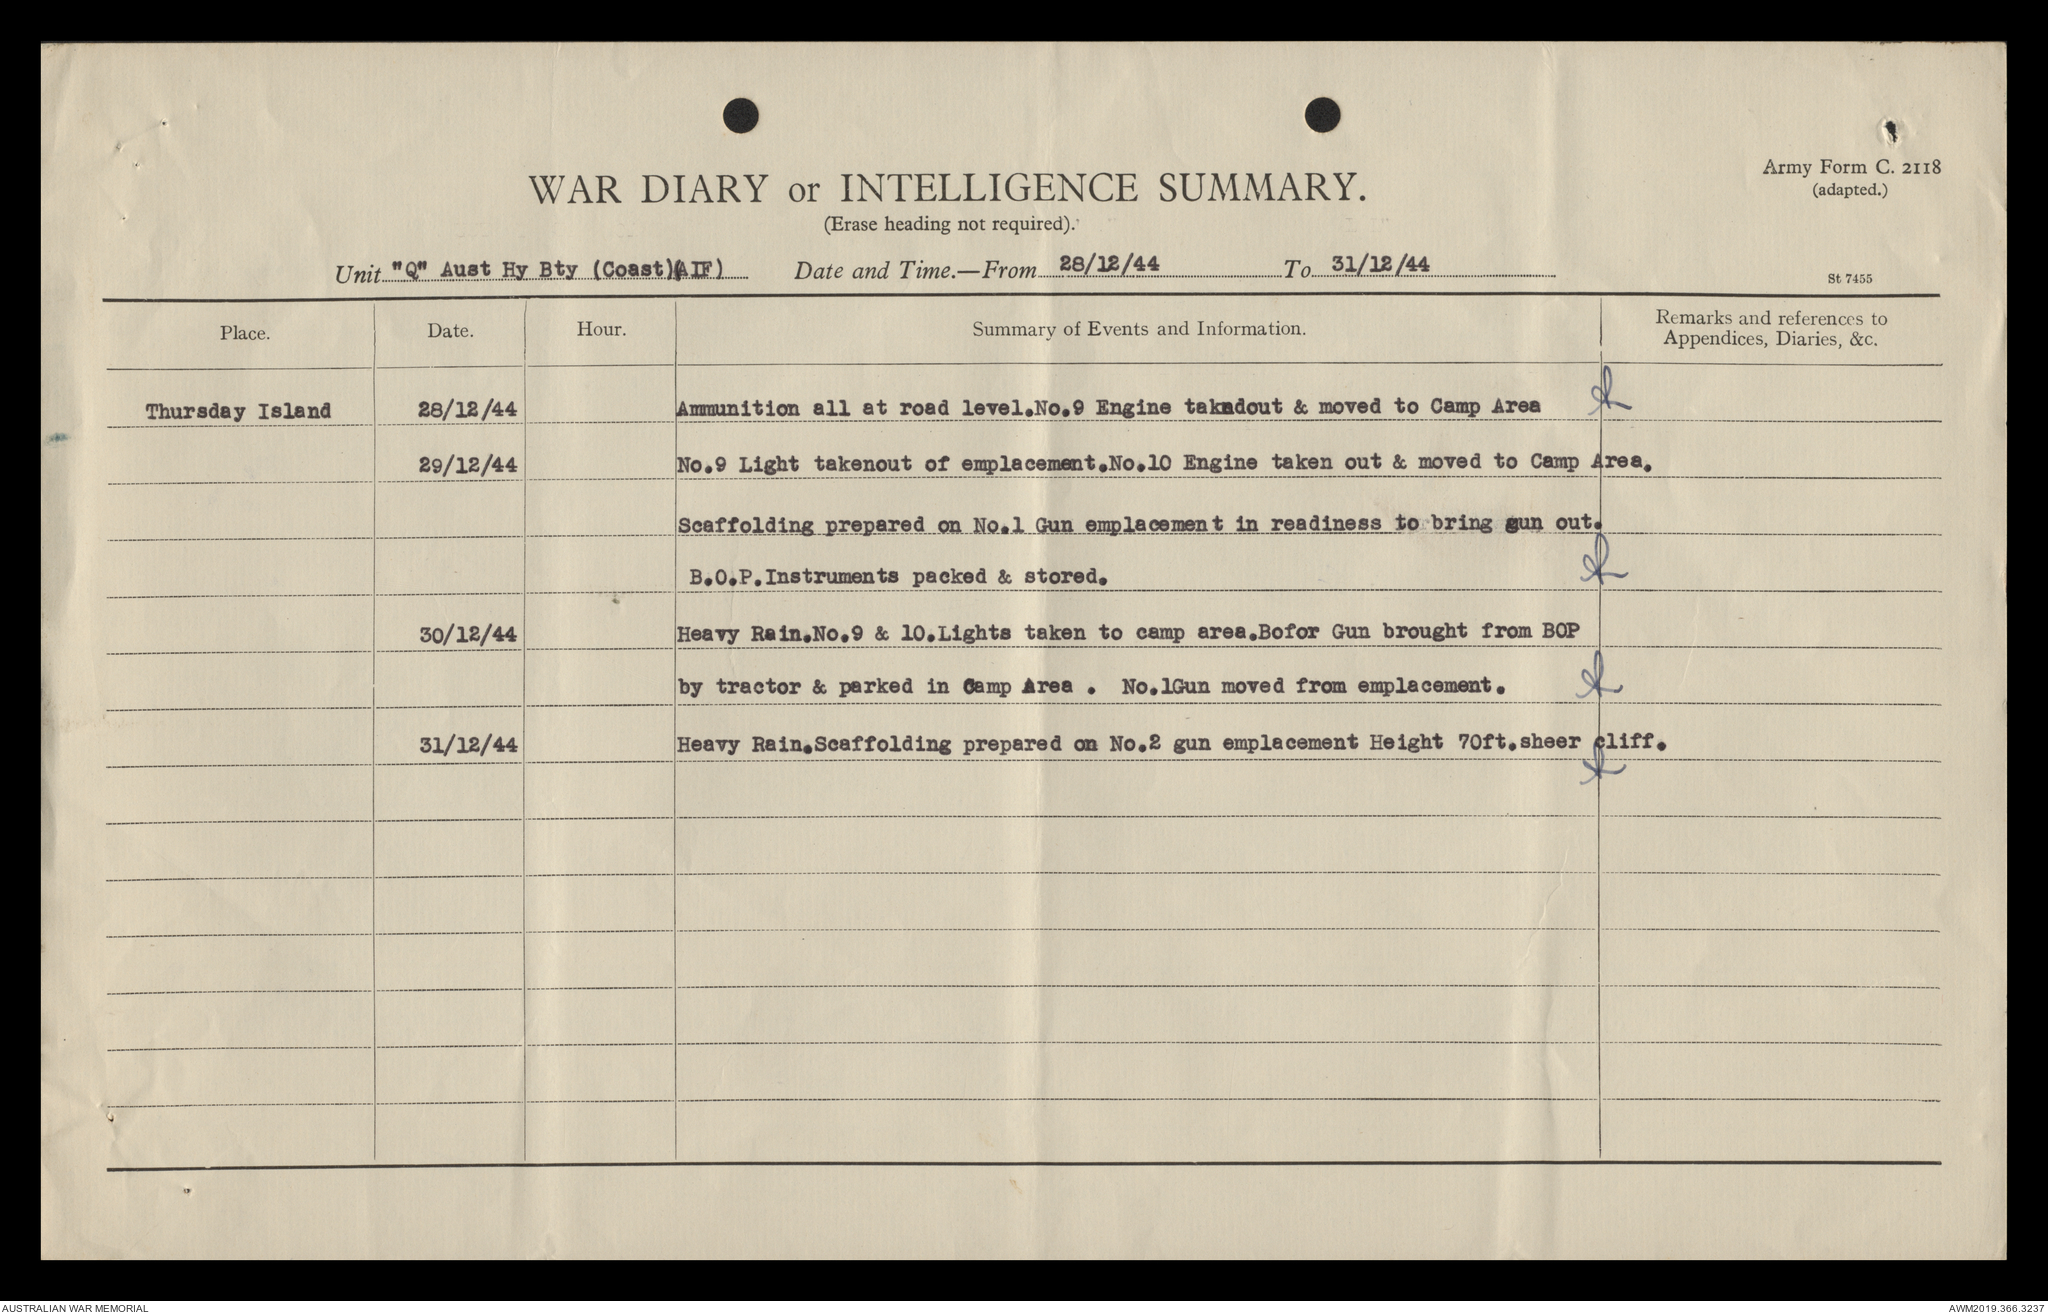 Army Form C. 2118
(adapted.)
WAR DIARY or INTELLIGENCE SUMMARY.
(Erase heading not required).
Unit "Q" Aust Hy Bty (Coast)(AIF) Date and Time.—From 28/12/44 To 31/12/44
St 7455
Place. Date. Hour. Summary of Events and Information. Remarks and references to
Appendices, Diaries, &c.
Thursday Island 28/12/44 Ammunition all at road level.No.9 Engine takndout & moved to Camp Area
29/12/44 No.9 Light takenout of emplacement.No.10 Engine taken out & moved to Camp Area.
Scaffolding prepared on No.1 Gun emplacement in readiness to bring gun out.
B.O.P.Instruments packed & stored.
30/12/44 Heavy Rain.No.9 & 10.Lights taken to camp area.Bofor Gun brought from BOP
by tractor & parked in Camp Area . No.1Gun moved from emplacement.
31/12/44 Heavy Rain.Scaffolding prepared on No.2 gun emplacement Height 70ft.sheer cliff.
AUSTRALIAN WAR MEMORIAL AWM2019.366.3237